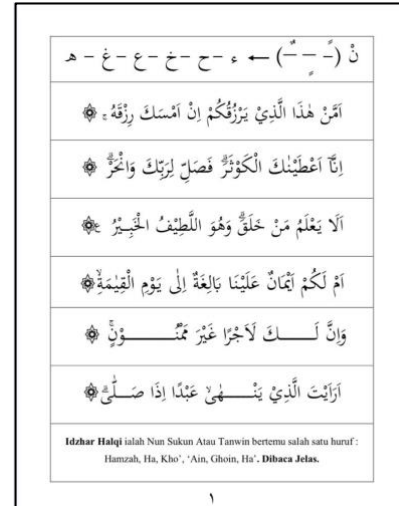 نْ (ـًـ ـٍـ ـٌـ) ← ء – ح – خ – ع – غ – هـ
اَمَّنْ هٰذَا الَّذِيْ يَرْزُقُكُمْ اِنْ اَمْسَكَ رِزْقَهُ ۚ ۞
اِنَّآ اَعْطَيْنٰكَ الْكَوْثَرَۗ فَصَلِّ لِرَبِّكَ وَانْحَرْۗ ۞
اَلَا يَعْلَمُ مَنْ خَلَقَۗ وَهُوَ اللَّطِيْفُ الْخَبِيْرُ ࣖ ۞
اَمْ لَكُمْ اَيْمَانٌ عَلَيْنَا بَالِغَةٌ اِلٰى يَوْمِ الْقِيٰمَةِۙ ۞
وَاِنَّ لَـــــكَ لَاَجْرًا غَيْرَ مَمْنُـــــوْنٍۚ ۞
اَرَاَيْتَ الَّذِيْ يَنْــــهٰىۙ عَبْدًا اِذَا صَــلّٰىۗ ۞
Idzhar Halqi ialah Nun Sukun Atau Tanwin bertemu salah satu huruf :
Hamzah, Ha, Kho', 'Ain, Ghoin, Ha'. Dibaca Jelas.
١